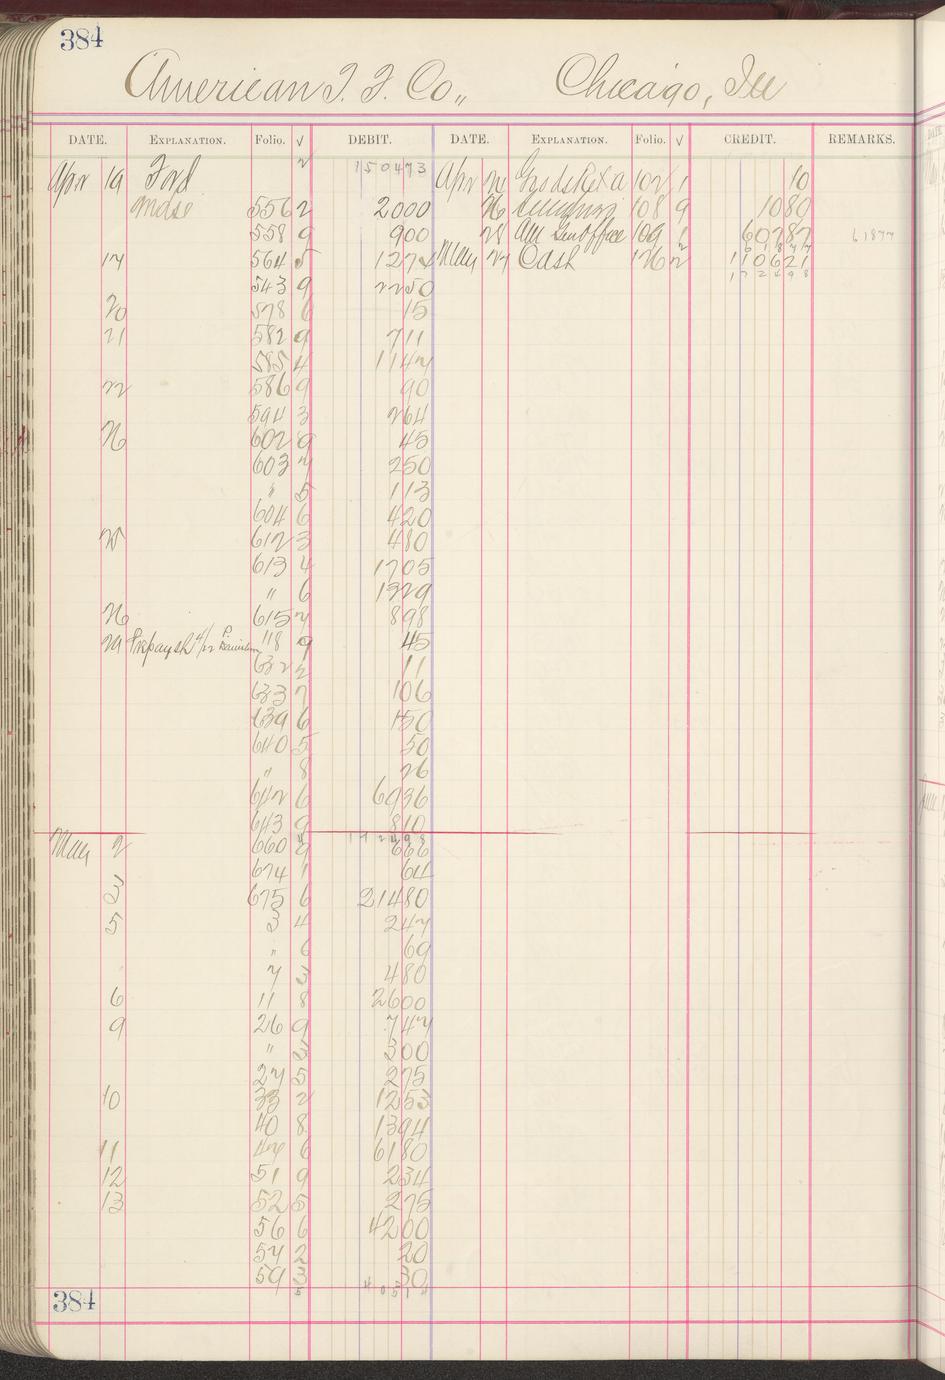 384
American T. T. Co., Chicago, Ill
DATE. EXPLANATION. Folio. √ DEBIT. DATE. EXPLANATION. Folio. √ CREDIT. REMARKS.
Apr 19 Ford 2 150473 Apr 21 102 1 10
Mdse 556 2 2000 26 108 9 1080
558 9 900 28 Am Genl Office 109 1 60787 61877
61877
19 564 5 127 May 27 Cash 126 2 110621
172498
543 9 2250
20 578 6 15
21 582 9 711
585 4 1147
22 586 9 90
594 3 264
26 602 9 45
603 7 250
" 5 113
604 6 420
25 612 3 480
613 4 1705
" 6 1329
26 615 7 898
29 618 9 45
632 2 11
633 7 106
639 6 150
640 5 50
" 8 26
642 6 6936
643 9 810
4 172498
May 2 660 9 666
674 1 64
3 675 6 21480
5 3 4 247
" 6 69
7 3 480
6 11 8 2600
9 26 9 747
" 3 300
27 5 275
10 33 2 1253
40 8 1394
11 47 6 6180
12 51 9 234
13 52 5 275
56 6 4200
57 2 20
59 3 30
5
384